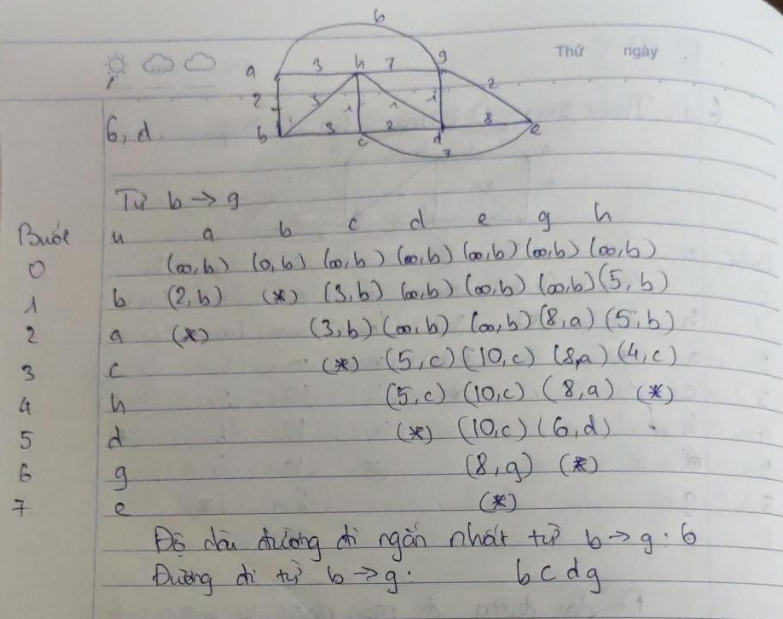 6
Thứ ngày
a 3 h 7 g
2 5 1 1 1 2
6, d. b 3 c 2 d 8 e
7
Từ b → g
Bước u a b c d e g h
0 (∞,b) (0,b) (∞,b) (∞,b) (∞,b) (∞,b) (∞,b)
1 b (2,b) (*) (3,b) (∞,b) (∞,b) (∞,b) (5,b)
2 a (*) (3,b) (∞,b) (∞,b) (8,a) (5,b)
3 c (*) (5,c) (10,c) (8,a) (4,c)
4 h (5,c) (10,c) (8,a) (*)
5 d (*) (10,c) (6,d)
6 g (8,g) (*)
7 e (*)
Độ dài đường đi ngắn nhất từ b → g: 6
Đường đi từ b → g: b c d g